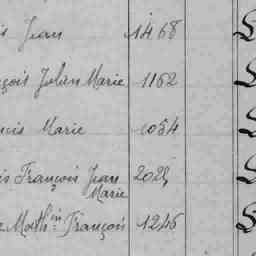 is Jean 1468
nçois Julien Marie 1162
ncis Marie 1054
is François Jean 2025
Marie
e Mathin François 1246